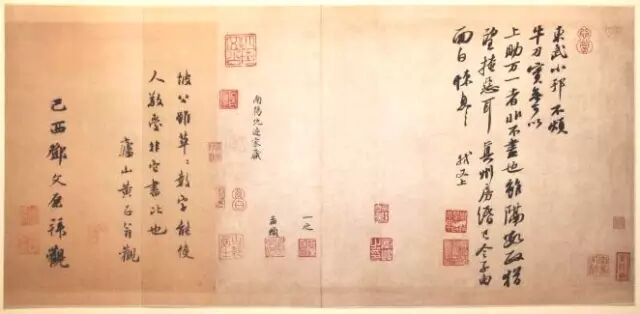 東武小邦不煩
牛刀實無可以
上助万一者非不盡也雖隔數政猶
望掩惡耳真州房緡已令子由
面白悚息〻 軾又上
一之
南陽仇遠家藏
坡公雖草〻數字能使
人敬愛非它書比也
廬山黃石翁觀
己酉鄧文原拜觀